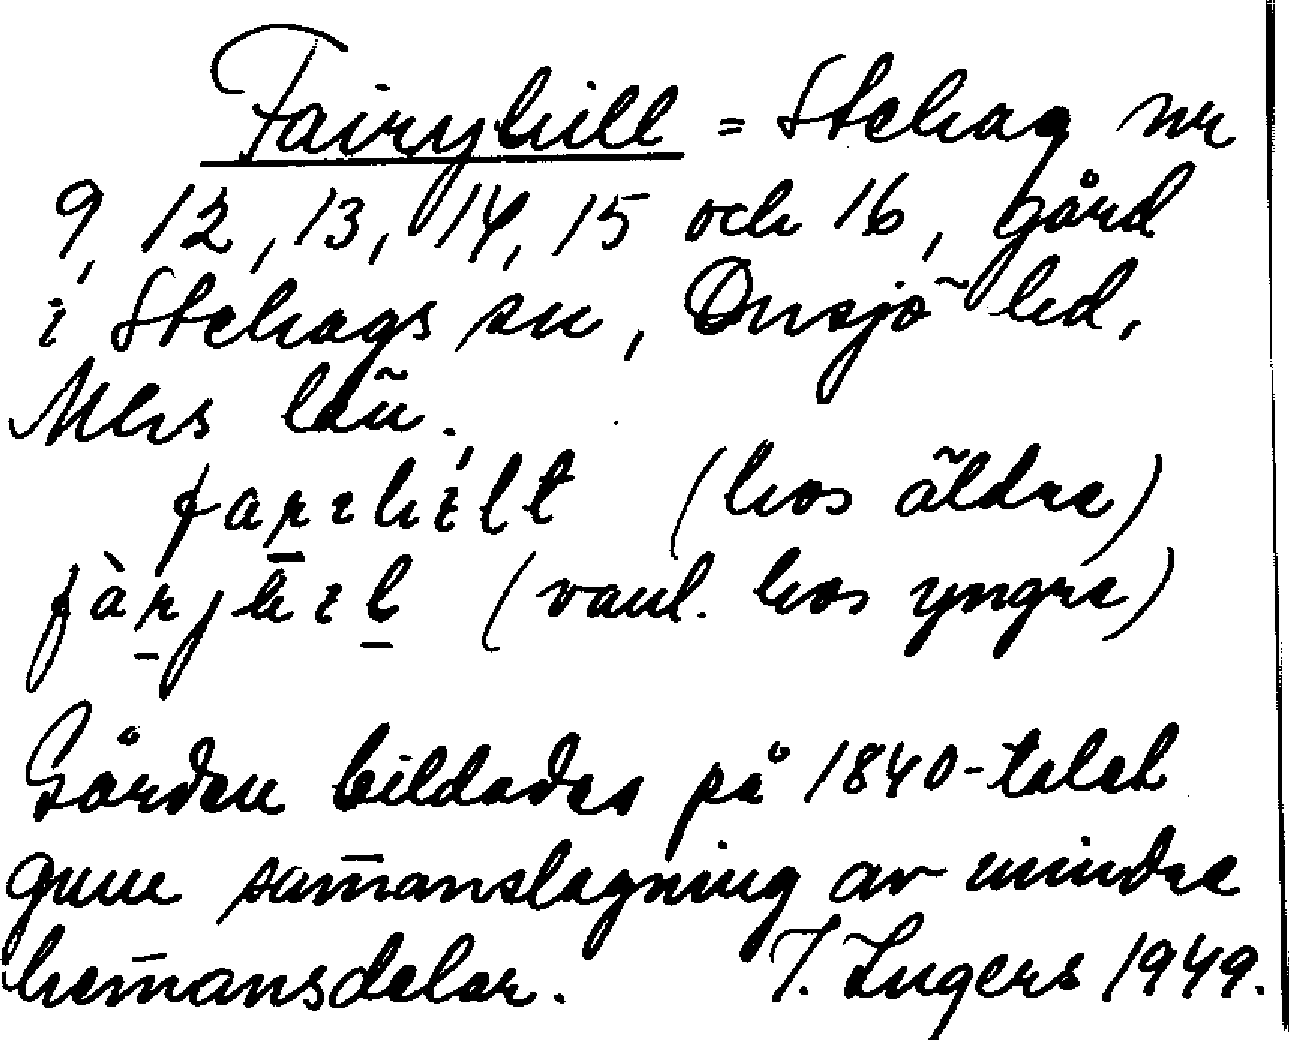 Fairyhill = Stehag nr
9, 12, 13, 14, 15 och 16, gård
i Stehags sn, Onsjö hd,
Mlhs län.
farihilt (hos äldre)
fàrjhil (vanl. hos yngre)
Gården bildades på 1840-talet
gnm sam̄anslagning av mindre
hem̄ansdelar. I. Ingers 1949.